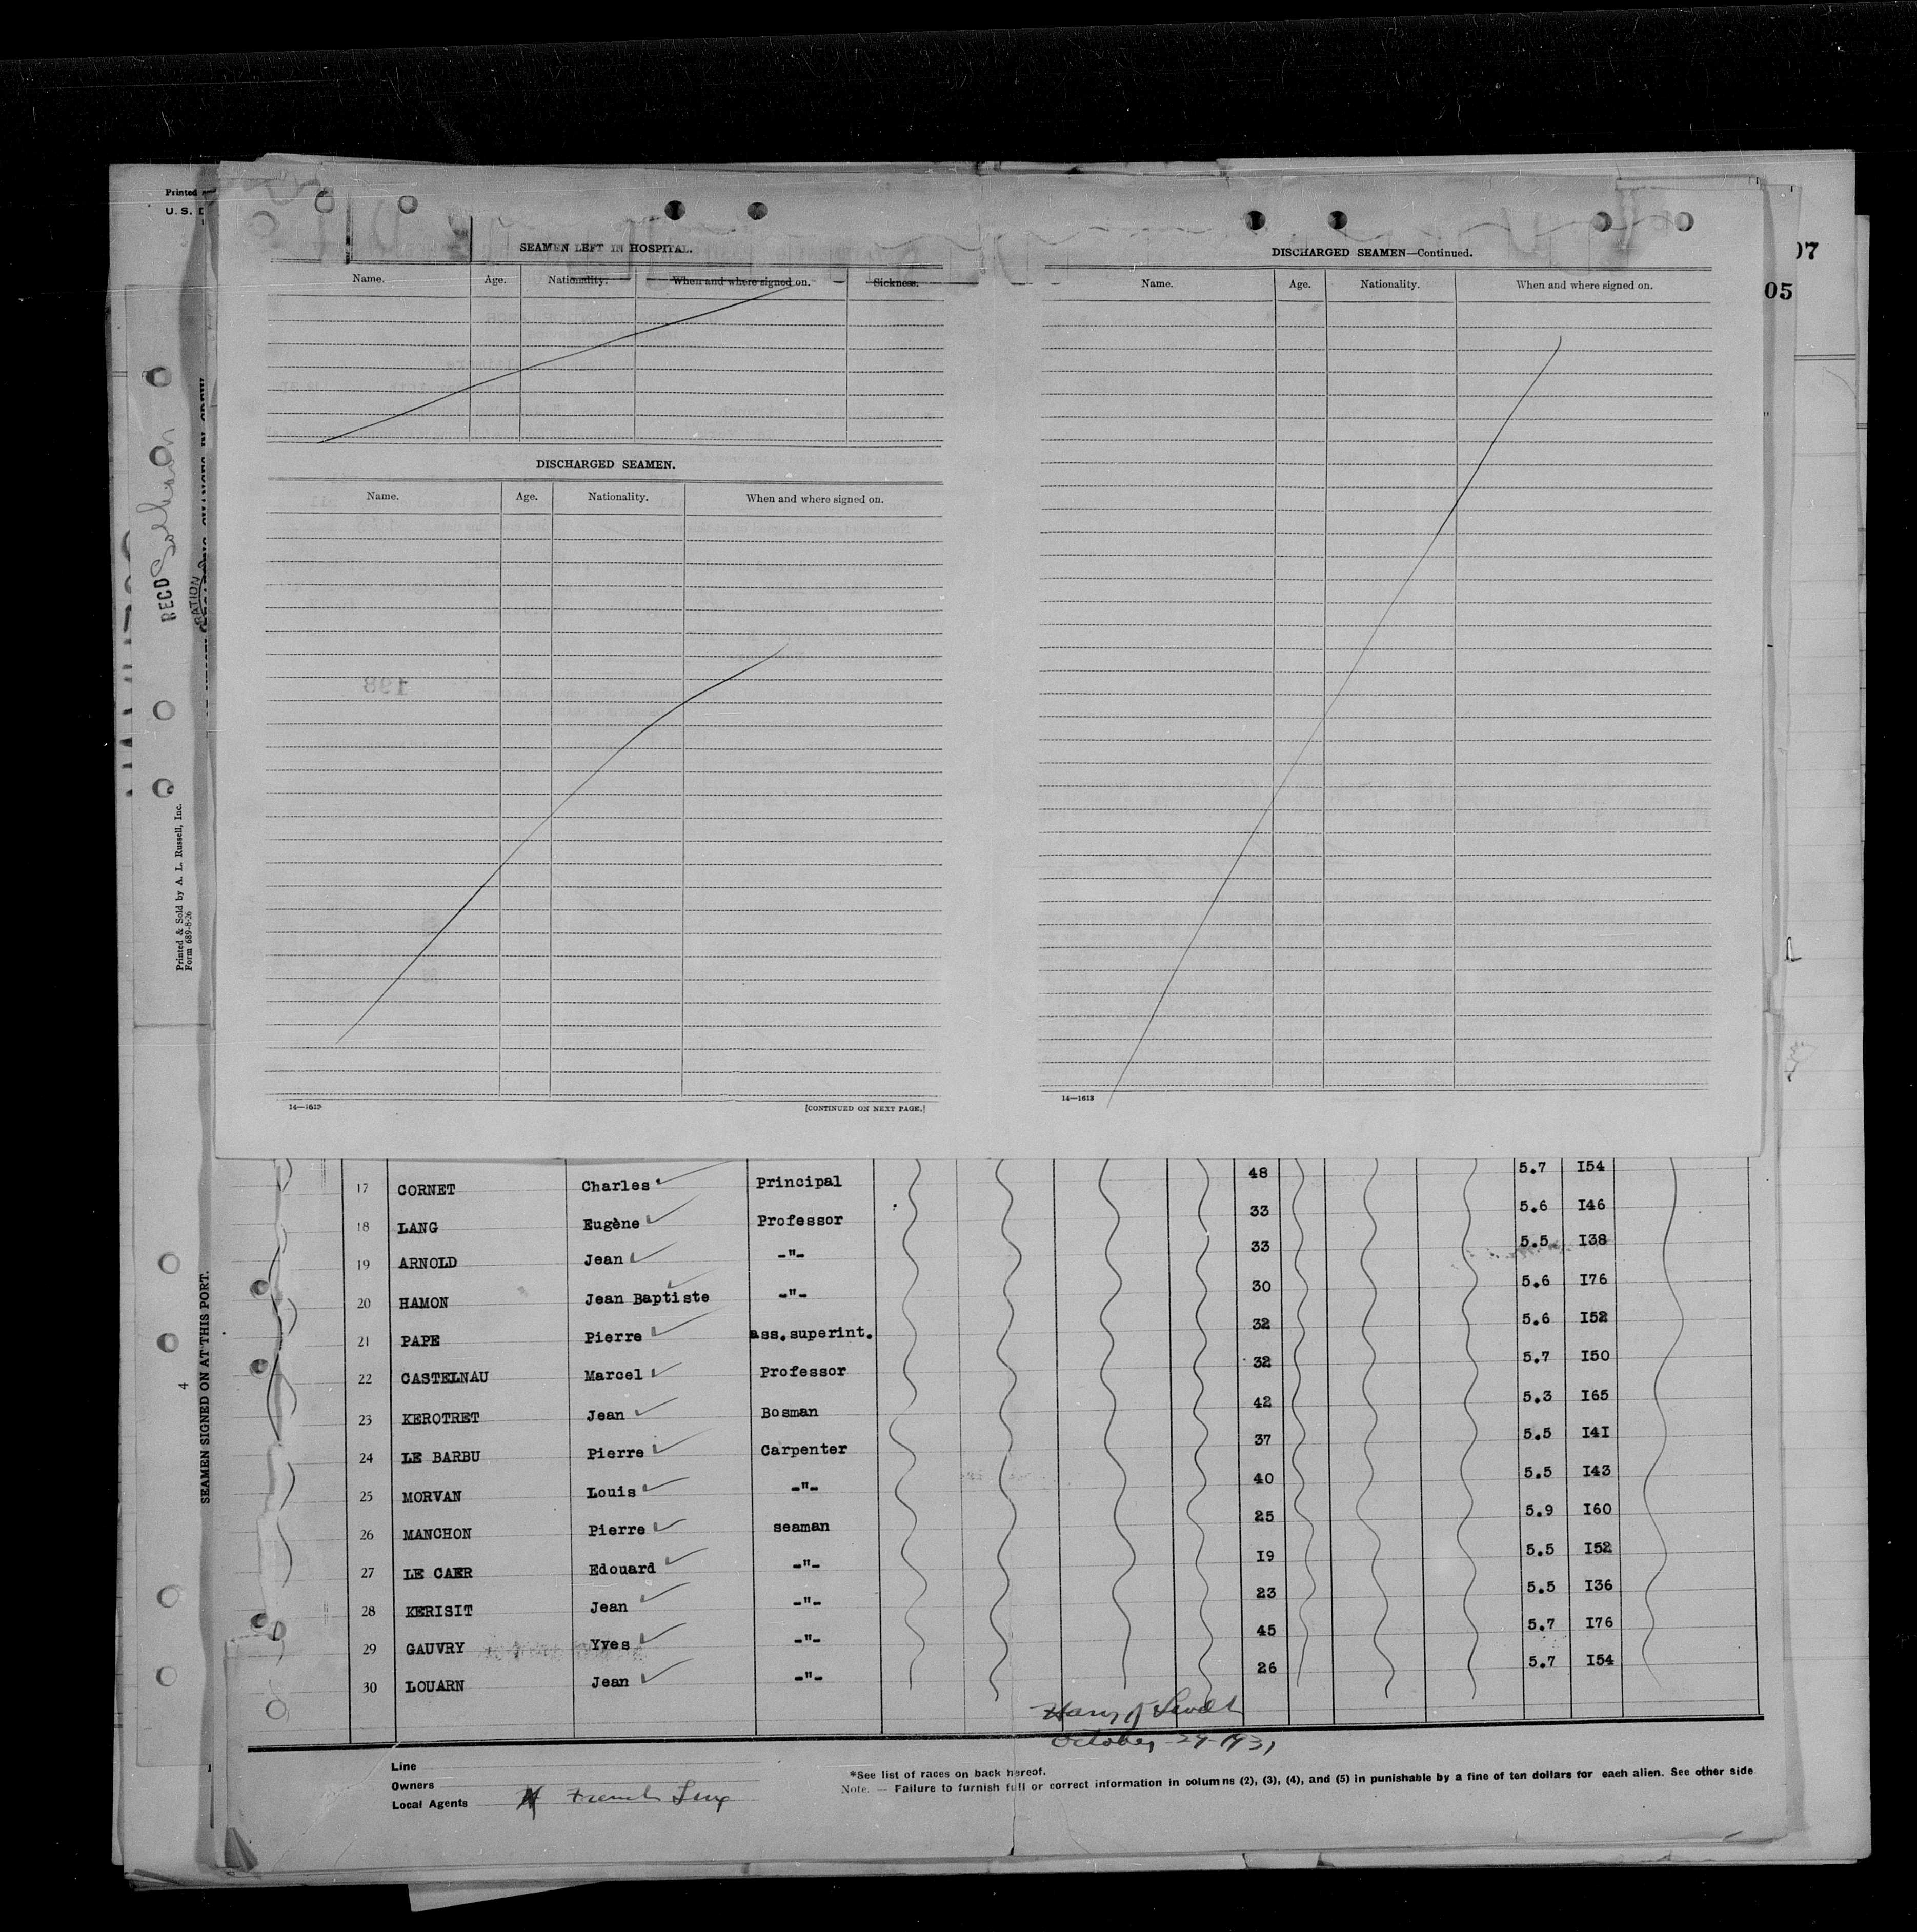 Printed
U. S.
07
05
SEAMEN LEFT IN HOSPITAL.
Name. Age. Nationality. When and where signed on. Sickness.
DISCHARGED SEAMEN.
Name. Age. Nationality. When and where signed on.
198
14—1613
[CONTINUED ON NEXT PAGE.]
DISCHARGED SEAMEN—Continued.
Name. Age. Nationality. When and where signed on.
14—1613
RECD
Printed & Sold by A. L. Russell, Inc.
Form 689-8-26
4
SEAMEN SIGNED ON AT THIS PORT.
17 CORNET Charles Principal 48 5.7 I54
18 LANG Eugène Professor 33 5.6 I46
19 ARNOLD Jean -"- 33 5.5 I38
20 HAMON Jean Baptiste -"- 30 5.6 I76
21 PAPE Pierre ass.superint. 32 5.6 I52
22 CASTELNAU Marcel Professor 32 5.7 I50
23 KEROTRET Jean Bosman 42 5.3 I65
24 LE BARBU Pierre Carpenter 37 5.5 I4I
25 MORVAN Louis -"- 40 5.5 I43
26 MANCHON Pierre seaman 25 5.9 I60
27 LE CAER Edouard -"- I9 5.5 I52
28 KERISIT Jean -"- 23 5.5 I36
29 GAUVRY Yves -"- 45 5.7 I76
30 LOUARN Jean -"- 26 5.7 I54
Harry
October 29-1931
Line
Owners
Local Agents French Line
*See list of races on back hereof.
Note. — Failure to furnish full or correct information in columns (2), (3), (4), and (5) in punishable by a fine of ten dollars for each alien. See other side